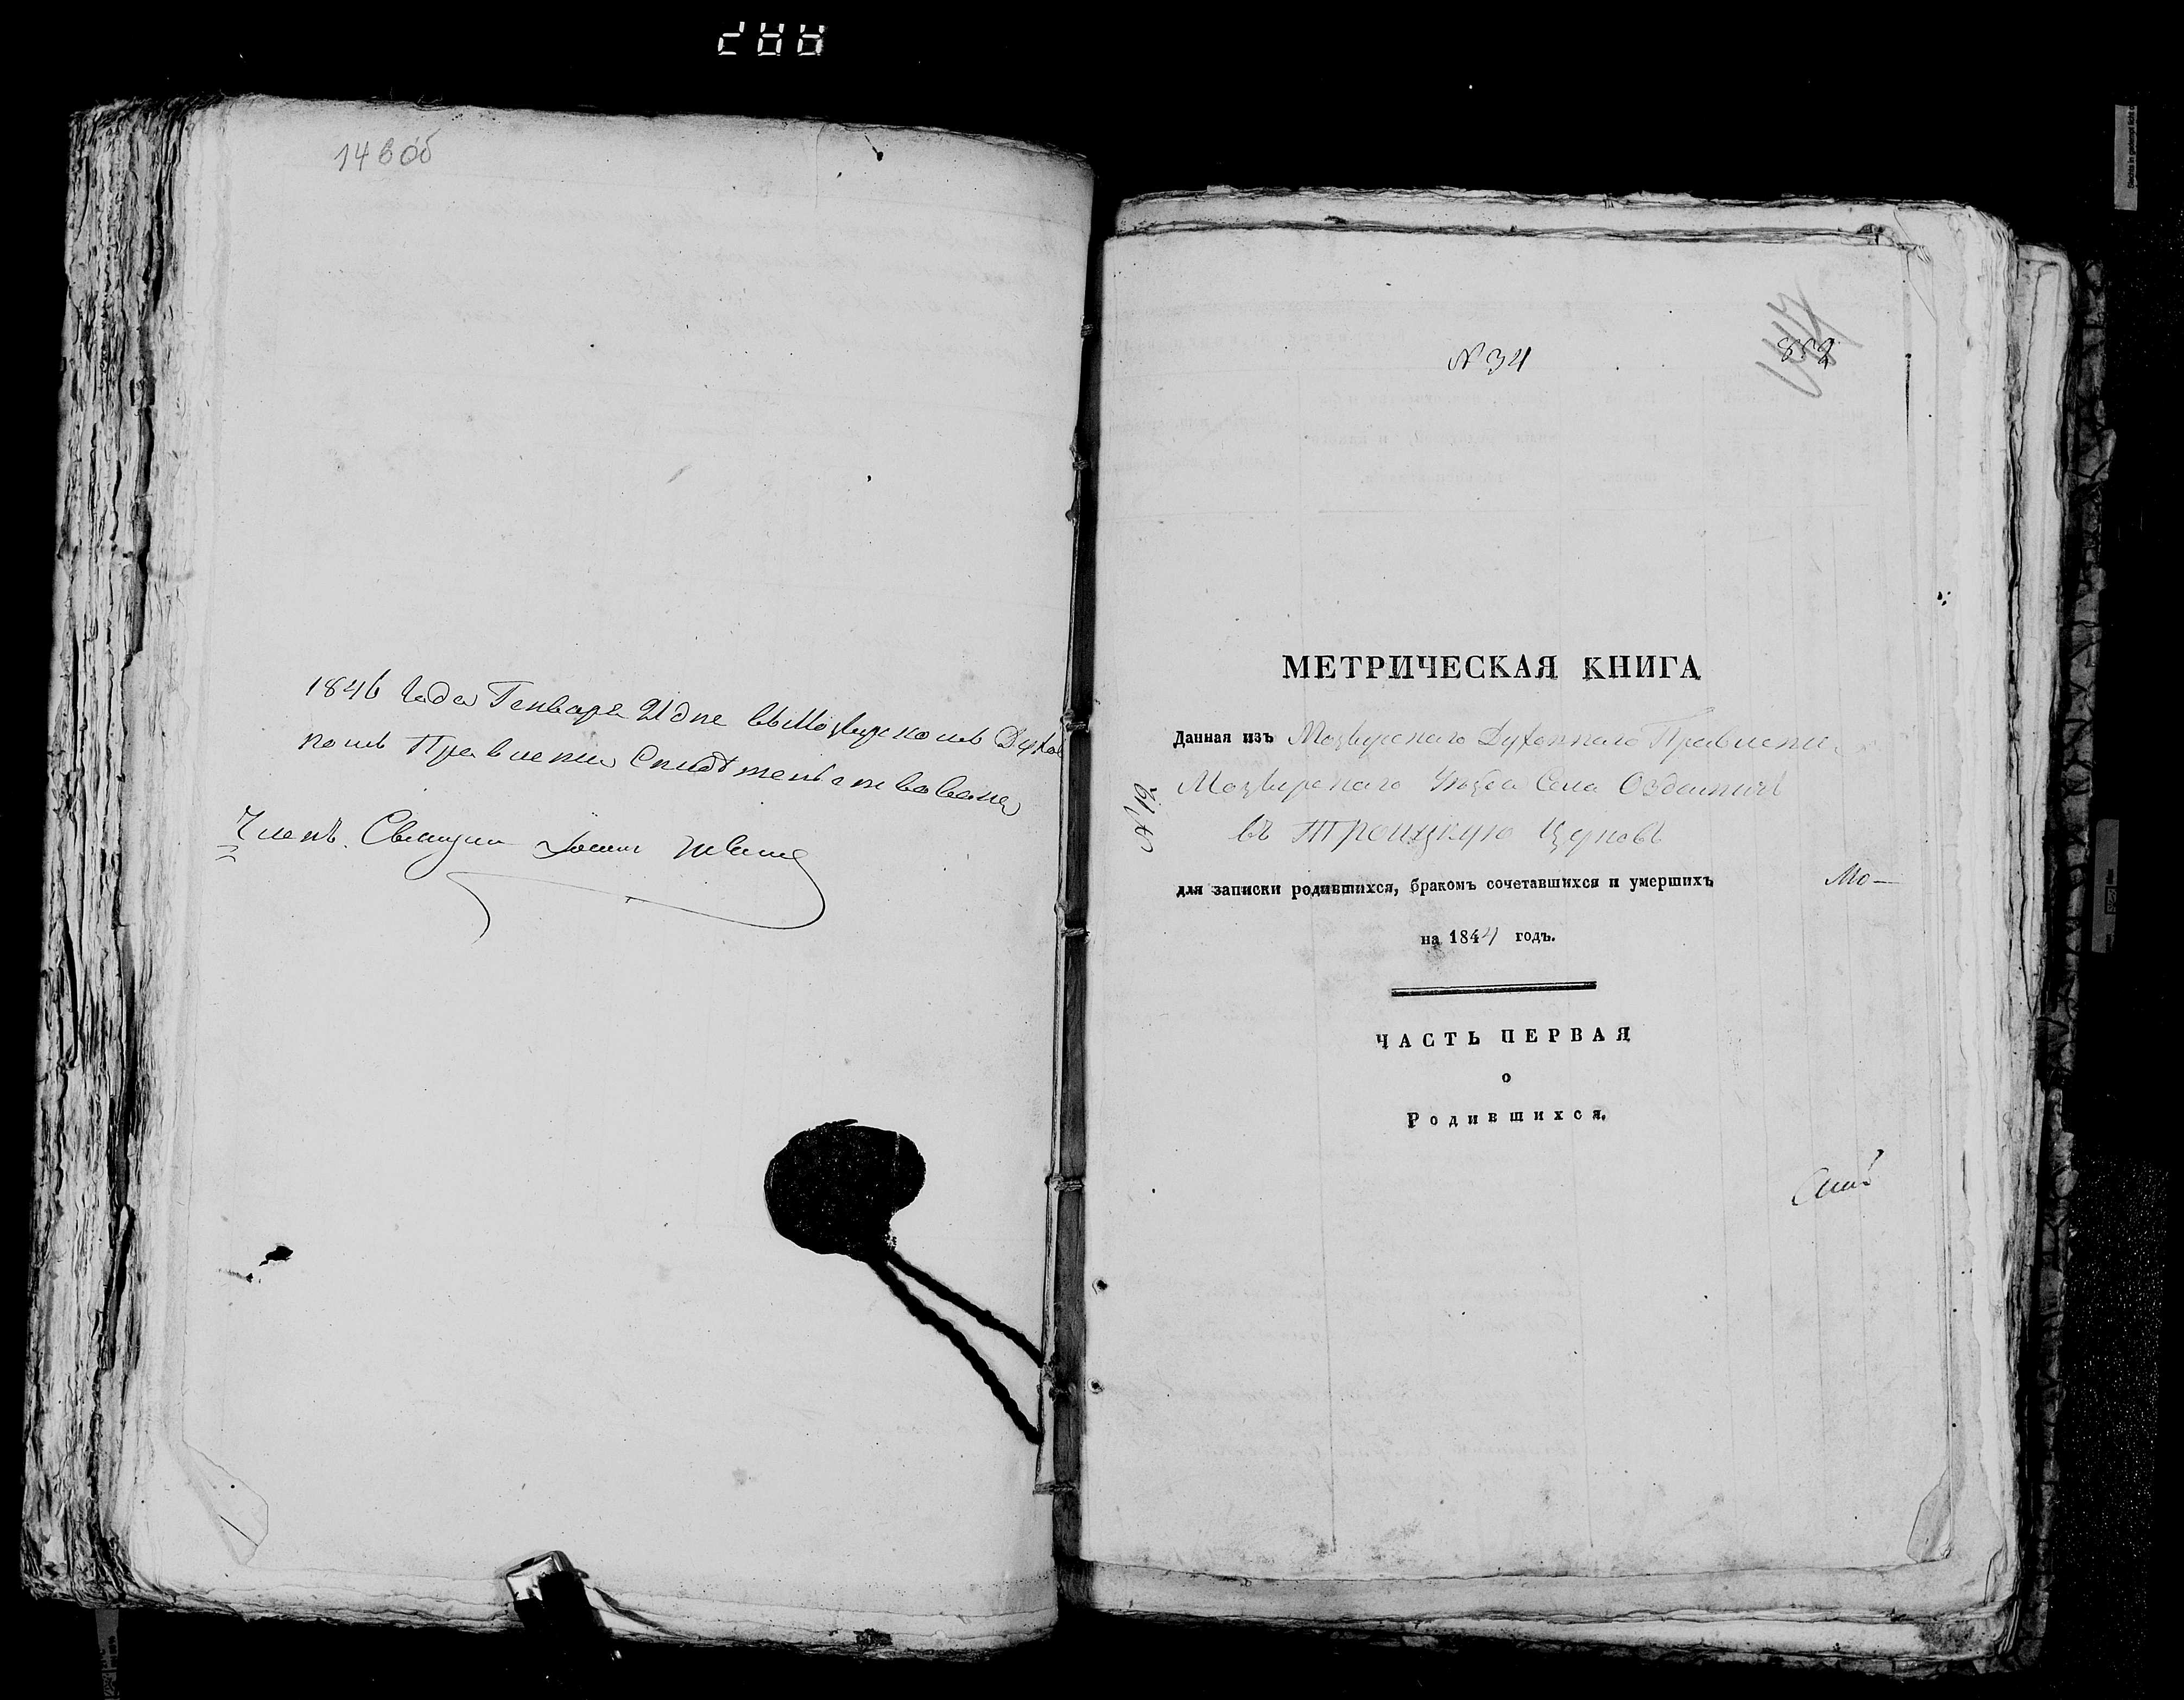 143 об
1846 года Генваря 21 дне въ Мозырскомъ Духов
номъ Правлении Свидѣтельствована
Членъ Священник Іоанн
N 34
МЕТРИЧЕСКАЯ КНИГА
Данная изъ Мозырскаго Духовнаго Правлени
Мозырскаго Уезда Села Оздамичъ
въ Троицкую Церковь
для записки родившихся, бракомъ сочетавшихся и умершихъ
Мо-
на 1844 годъ.
ЧАСТЬ ПЕРВАЯ
о
Родившихся.